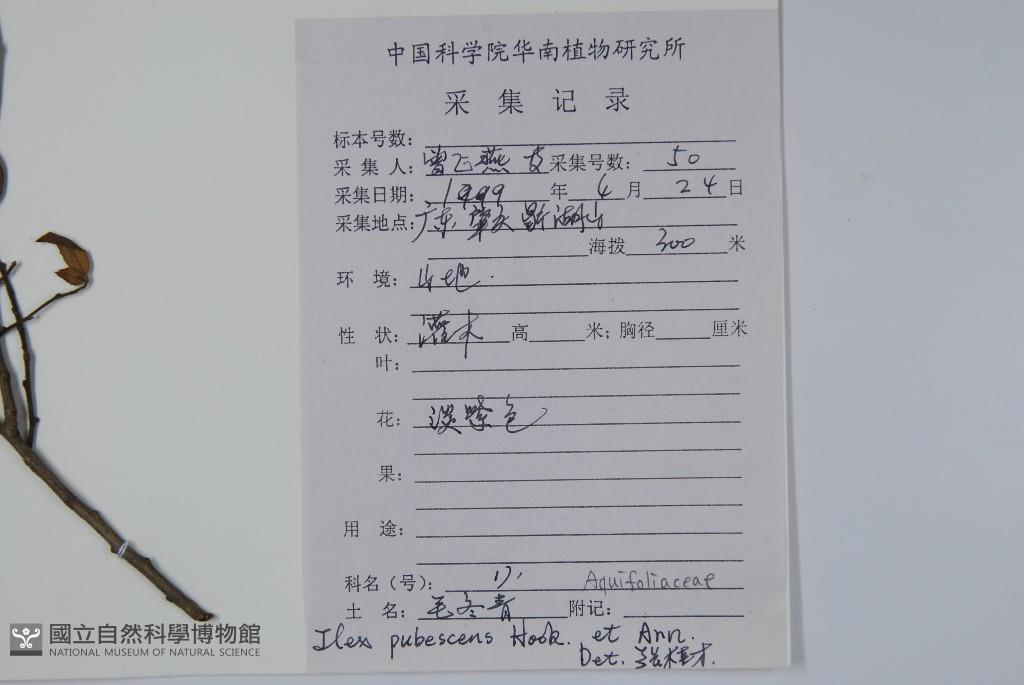 中国科学院华南植物研究所
采 集 记 录
标本号数：
采 集 人：曾飞燕 采集号数：50
采集日期：1999 年 4 月 24 日
采集地点：广东肇庆鼎湖山
海拨 300 米
环 境：山地.
性 状：灌木 高 米；胸径 厘米
叶：
花：淡紫色
果：
用 途：
科名（号）： Aquifoliaceae
土 名：毛冬青 附记：
Ilex pubescens Hook. et Ann.
Det.
國立自然科學博物館
NATIONAL MUSEUM OF NATURAL SCIENCE